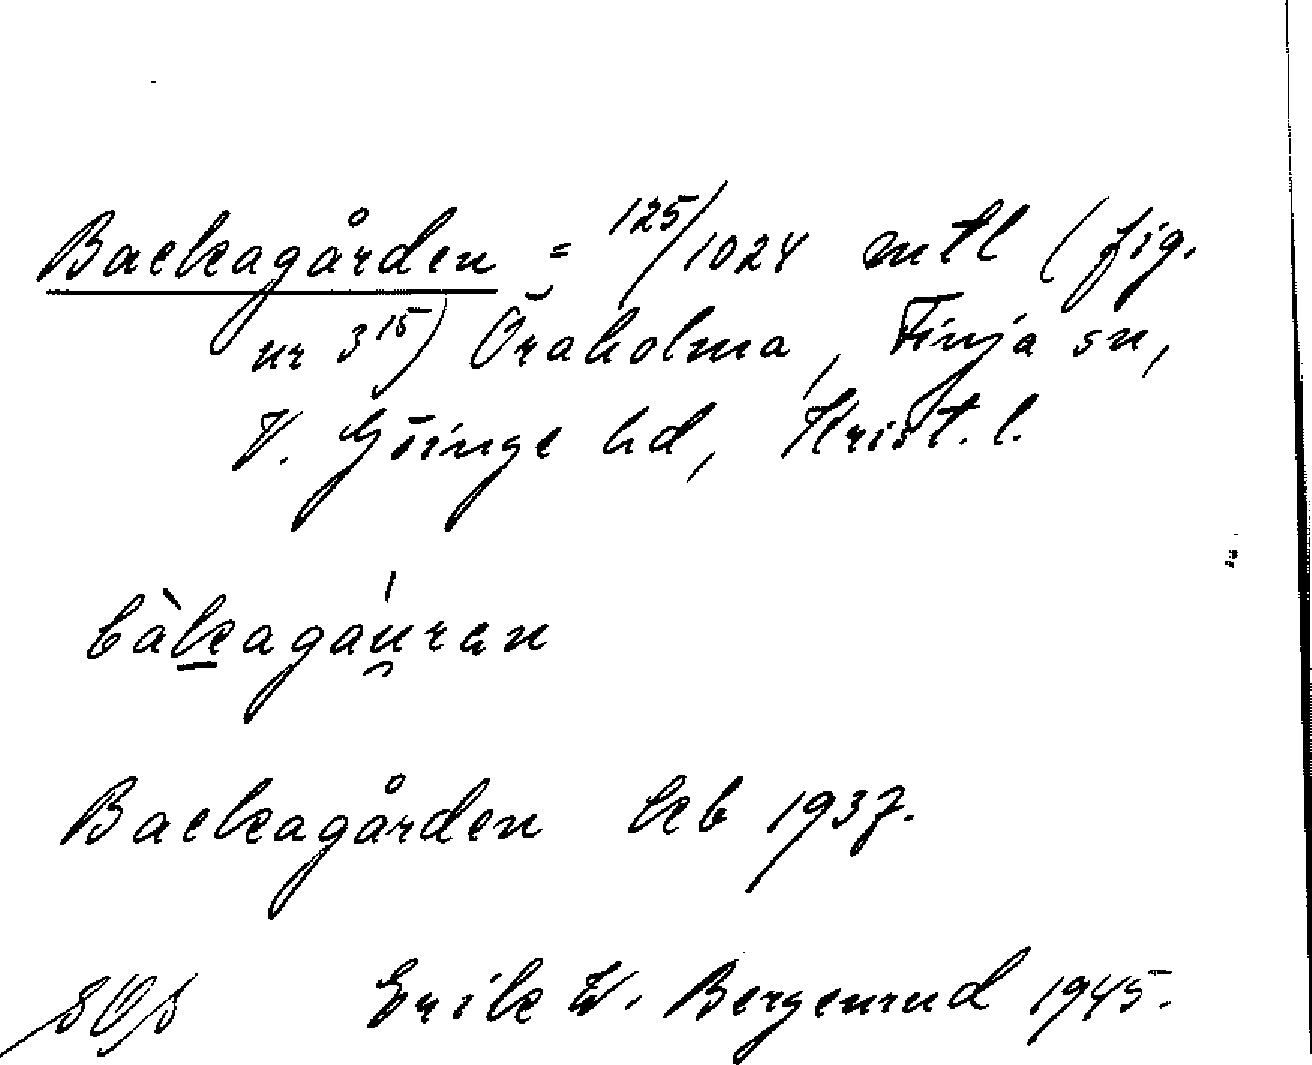 Backagården = 125/1024 mtl (fig.
nr 3¹⁵) Öraholma, Finja sn,
V. Göinge hd, Krist. l.
bàk̲agáu̯ran
Backagården kb 1937.
Erik W. Bergenrud 1945.